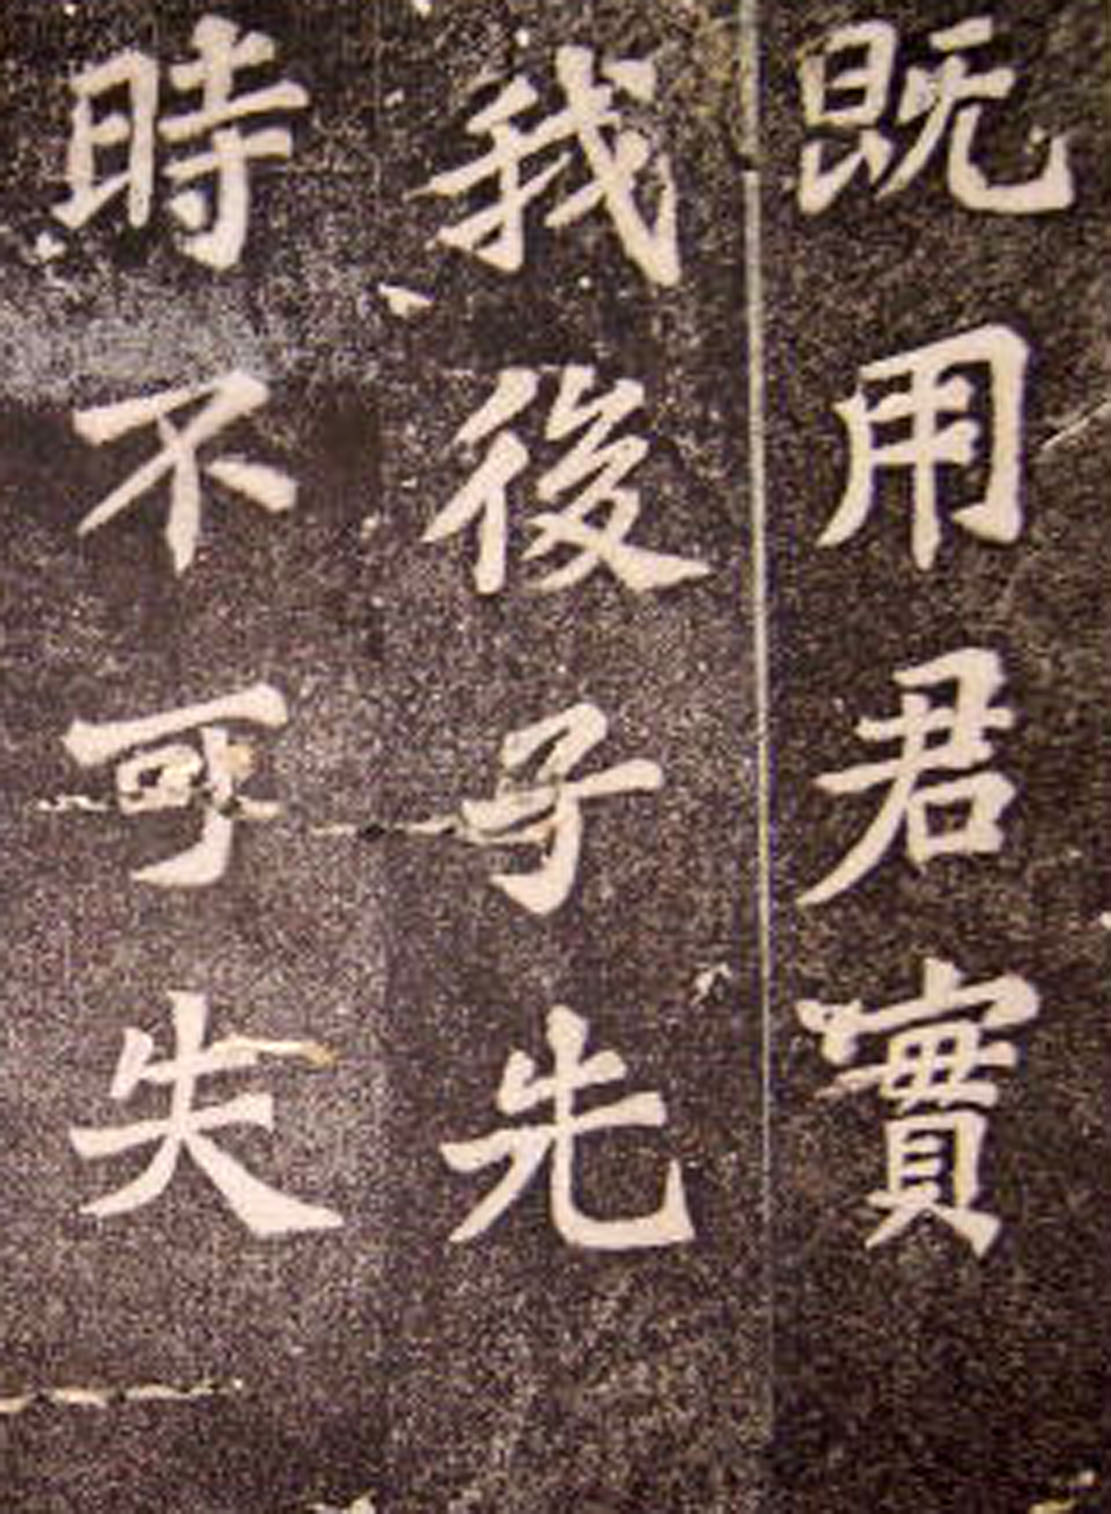 既用君實
我後子先
時不可失